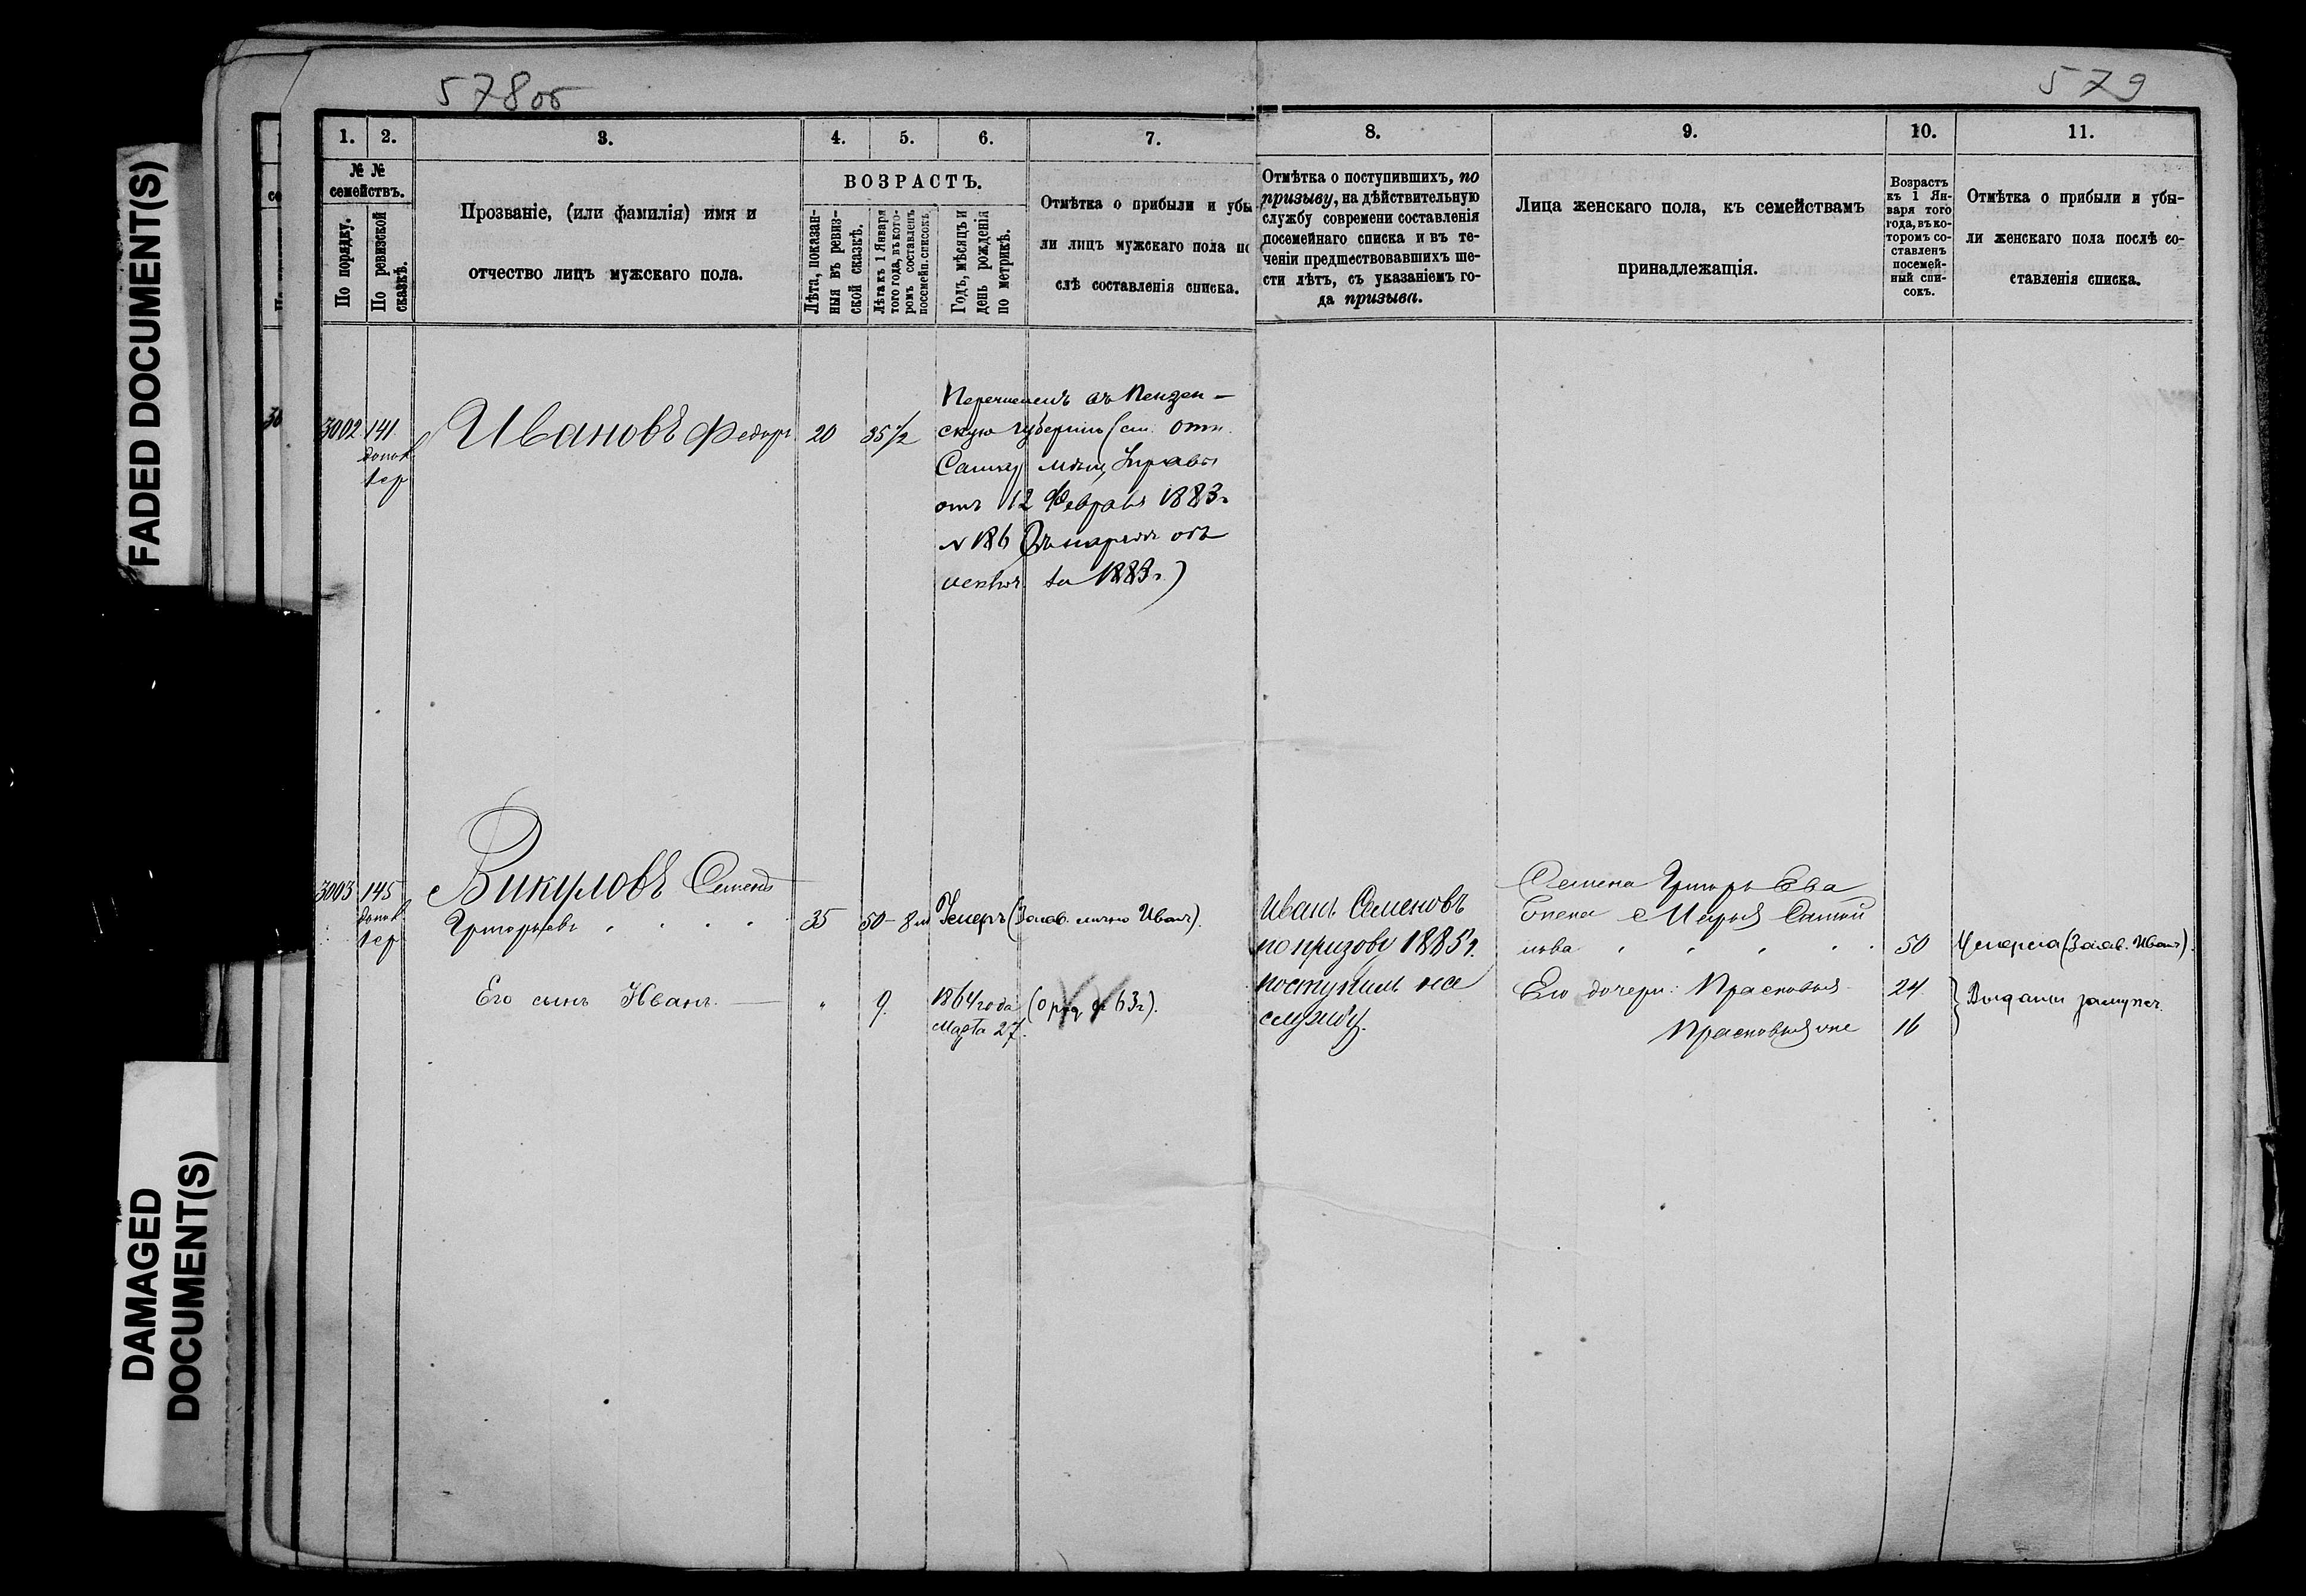 578 об
579
FADED DOCUMENT(S)
DAMAGED
DOCUMENT(S)
1.
2.
3.
4.
5.
6.
7.
8.
9.
10.
11.
№ №
семействъ.
По порядку.
По ревизской
сказкѣ.
Прозваніе, (или фамилія) имя и
отчество лицъ мужскаго пола.
ВОЗРАСТЪ.
Лѣта, показан-
ныя въ ревиз-
ской сказкѣ.
Лѣта къ 1 Января
того года, въ кото-
ромъ составленъ
посемейн. списокъ.
Годъ, мѣсяцъ и
день рожденія
по метрикѣ.
Отмѣтка о прибыли и убы
ли лицъ мужскаго пола по
слѣ составленія списка.
Отмѣтка о поступившихъ, по
призыву, на дѣйствительную
службу современи составленія
посемейнаго списка и въ те-
ченіи предшествовавшихъ ше-
сти лѣтъ, съ указаніемъ го-
да призыва.
Лица женскаго пола, къ семействамъ
принадлежащія.
Возрастъ
къ 1 Ян-
варя того
года, въ ко-
торомъ со-
ставленъ
посемей-
ный спи-
сокъ.
Отмѣтка о прибыли и убы-
ли женскаго пола послѣ со-
ставленія списка.
3002 141 Ивановъ Федоръ 20 35 1/2
допол.
Перечисленъ въ Пензен-
скую губернію (см. отн.
мѣщ. Управы
отъ 12 Февраля 1883 г.
№ 186
за 1883 г.)
3003 145 Викуловъ Семенъ
допол.
Григорьевъ 35 50-8 м Умеръ (Заяв. лично Иванъ).
Его сынъ Иванъ. " 9 1864 года
Марта 27. 63 г).
Иванъ Семеновъ
по призову 1885 г.
поступилъ на
службу.
Семена Григорьева
жена Марья
50 Умерла (Заяв. Иванъ).
Его дочери: Прасковья 24
Прасковья 16
Выданы замужъ.